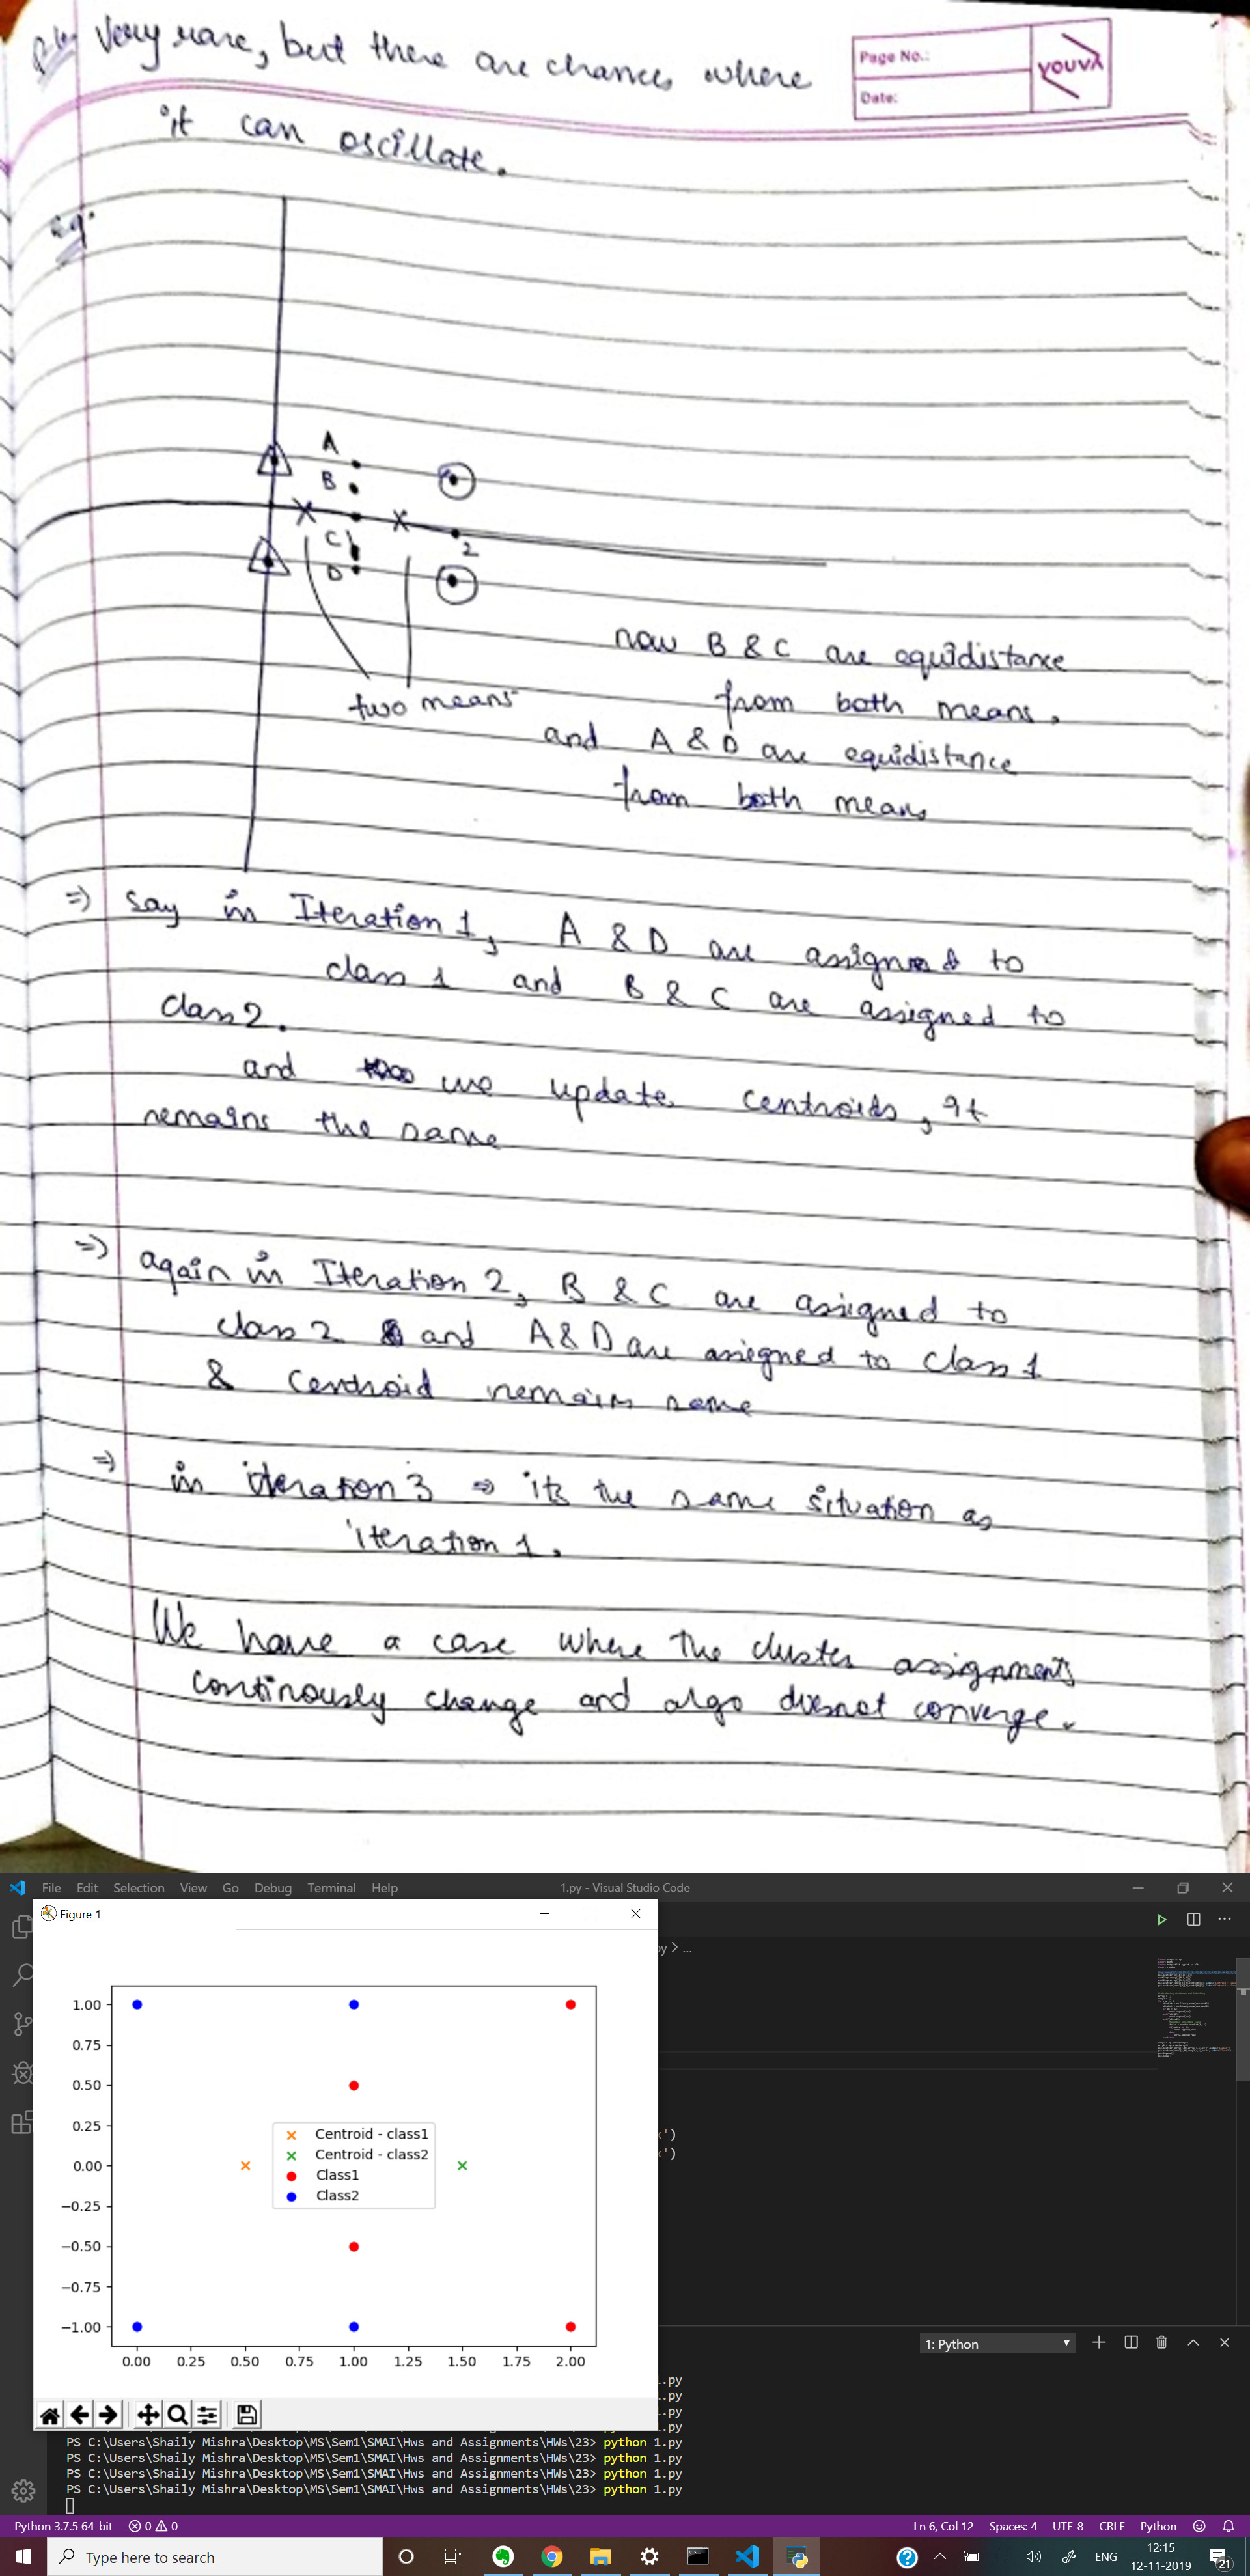 Very rare, but there are chances where
Page No.:
Date:
YOUVA
it can oscillate.
eg.
A
B
C
D
2
now B & C are equidistance
two means
from both means,
and A & D are equidistance
from both means
=) Say in Iteration 1, A & D are assigned to
class 1 and B & C are assigned to
Class 2.
and we update centroids, it
remains the same
=) again in Iteration 2, B & C are assigned to
class 2 and A & D are assigned to class 1
& Centroid remains same
=) in iteration 3 => its the same situation as
iteration 1.
We have a case where the cluster assignments
continously change and algo doesnot converge.
File Edit Selection View Go Debug Terminal Help
1.py - Visual Studio Code
Figure 1
py > ...
1.00
0.75
0.50
0.25
0.00
−0.25
−0.50
−0.75
−1.00
Centroid - class1
Centroid - class2
Class1
Class2
')
')
0.00 0.25 0.50 0.75 1.00 1.25 1.50 1.75 2.00
1: Python
.py
.py
.py
.py
PS C:\Users\Shaily Mishra\Desktop\MS\Sem1\SMAI\Hws and Assignments\HWs\23> python 1.py
PS C:\Users\Shaily Mishra\Desktop\MS\Sem1\SMAI\Hws and Assignments\HWs\23> python 1.py
PS C:\Users\Shaily Mishra\Desktop\MS\Sem1\SMAI\Hws and Assignments\HWs\23> python 1.py
PS C:\Users\Shaily Mishra\Desktop\MS\Sem1\SMAI\Hws and Assignments\HWs\23> python 1.py
Python 3.7.5 64-bit 0 0
Ln 6, Col 12 Spaces: 4 UTF-8 CRLF Python
Type here to search
ENG
12:15
12-11-2019
21